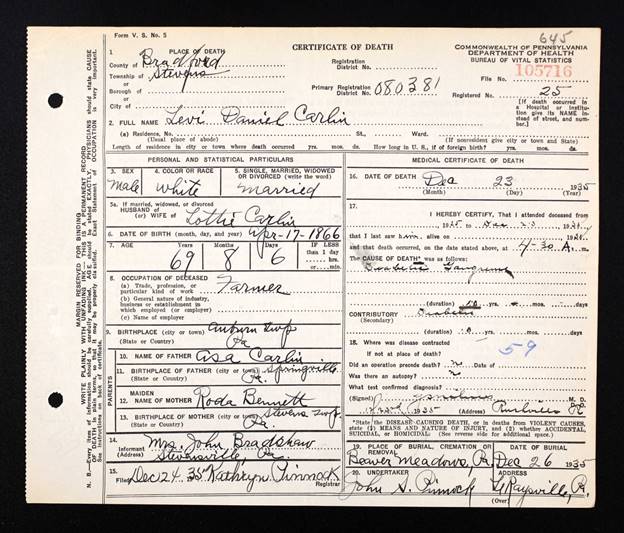 Form V. S. No. 5
CERTIFICATE OF DEATH
645
COMMONWEALTH OF PENNSYLVANIA
DEPARTMENT OF HEALTH
BUREAU OF VITAL STATISTICS
1 PLACE OF DEATH
County of Bradford
Township of Stevens
or
Borough of
or
City of
Registration District No.
Primary Registration District No. 080381
File No. 105716
Registered No. 25
[If death occurred in a Hospital or institution give its NAME instead of street, and number.]
2. FULL NAME Levi Daniel Carlin
(a) Residence, No. St., Ward.
(Usual place of abode) (If nonresident give city or town and State)
Length of residence in city or town where death occurred yrs. mos. ds. How long in U. S., if of foreign birth? yrs. mos. ds.
MARGIN RESERVED FOR BINDING
WRITE PLAINLY WITH UNFADING INK—THIS IS A PERMANENT RECORD
PERSONAL AND STATISTICAL PARTICULARS
3. SEX
male
4. COLOR OR RACE
white
5. SINGLE, MARRIED, WIDOWED OR DIVORCED (write the word)
married
5a. If married, widowed, or divorced
HUSBAND of
(or) WIFE of Lottie Carlin
6. DATE OF BIRTH (month, day, and year) Apr-17-1866
7. AGE Years Months Days If LESS than 1 day
69 8 6
hrs. or min.
8. OCCUPATION OF DECEASED
(a) Trade, profession, or particular kind of work Farmer
(b) General nature of industry, business or establishment in which employed (or employer)
(c) Name of employer
9. BIRTHPLACE (city or town) Auburn twp
(State or Country) Pa
PARENTS
10. NAME OF FATHER Asa Carlin
11. BIRTHPLACE OF FATHER (city or town) Springville
(State or Country) Pa.
12. MAIDEN NAME OF MOTHER Roda Bennett
13. BIRTHPLACE OF MOTHER (city or town) Stevens twp.
(State or Country) Pa.
14. Informant Mrs. John Bradshaw
(Address) Stevensville, Pa.
15. Filed Dec 24 35 Kathryn Pinnock
Registrar
MEDICAL CERTIFICATE OF DEATH
16. DATE OF DEATH Dec 23 1935
(Month) (Day) (Year)
17. I HEREBY CERTIFY, That I attended deceased from
that I last saw him alive on
and that death occurred, on the date stated above, at 4-30 A. m.
The CAUSE OF DEATH* was as follows:
Diabetic Gangrene
(duration) 10 yrs. mos. ds.
CONTRIBUTORY Diabetes
(Secondary)
(duration) 10 yrs. mos. ds.
18. Where was disease contracted
if not at place of death?
59
Did an operation precede death? Date of
Was there an autopsy?
What test confirmed diagnosis?
(Signed) M. D.
1935 (Address)
*State the DISEASE CAUSING DEATH, or in deaths from VIOLENT CAUSES, state (1) MEANS AND NATURE OF INJURY, and (2) whether ACCIDENTAL, SUICIDAL, or HOMICIDAL. (See reverse side for additional space.)
19. PLACE OF BURIAL, CREMATION, OR REMOVAL
Beaver Meadows, Pa.
DATE OF BURIAL
Dec 26 1935
20. UNDERTAKER
John S. Pinnock
ADDRESS
LeRaysville, Pa.
(Over)